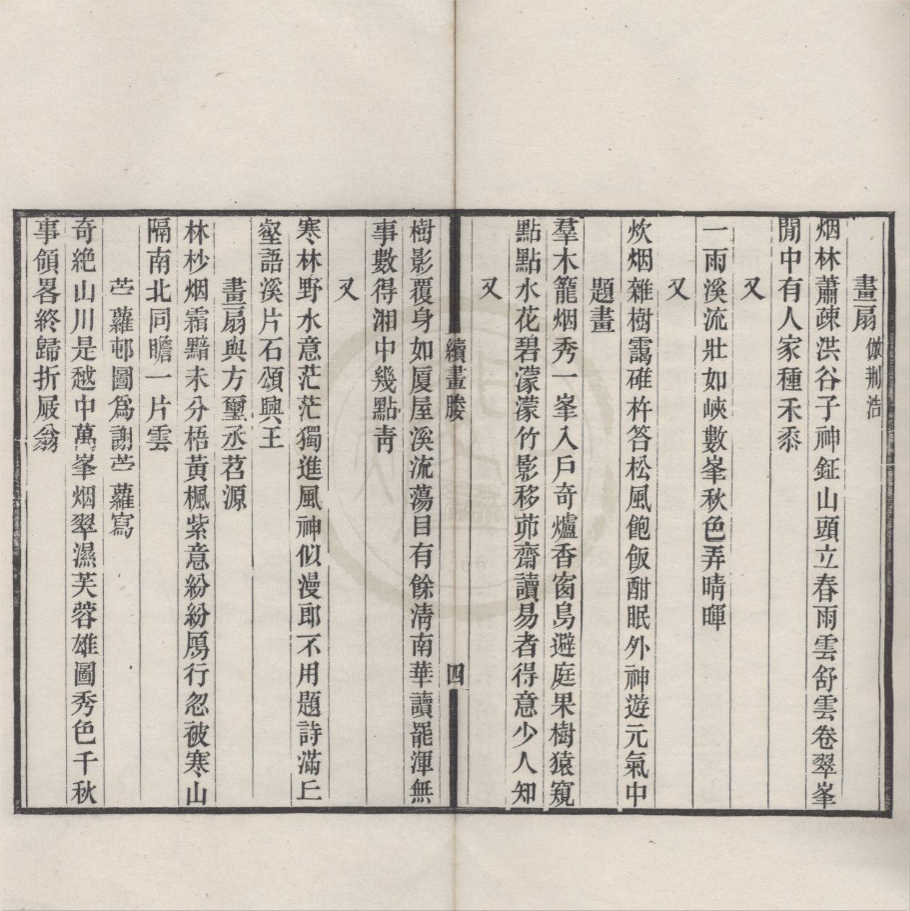 畫扇 倣荆浩
烟林蕭疎洪谷子神鉦山頭立春雨雲舒雲卷翠峯
閒中有人家種禾黍
又
一雨溪流壯如峽數峯秋色弄晴暉
又
炊烟雜樹靄碓杵答松風飽飯酣眠外神遊元氣中
題畫
羣木籠烟秀一峯入戶奇爐香窗鳥避庭果樹猿窺
點點水花碧濛濛竹影移茆齋讀易者得意少人知
又
續畫賸
四
樹影覆身如厦屋溪流蕩目有餘凊南華讀罷渾無
事數得湘中幾點靑
又
寒林野水意茫茫獨進風神似漫郎不用題詩滿丘
壑語溪片石頌興王
畫扇與方璽丞苕源
林杪烟霜黯未分梧黃楓紫意紛紛鴈行忽被寒山
隔南北同瞻一片雲
苎蘿邨圖爲謝苎蘿寫
奇絶山川是越中萬峯烟翠濕芙蓉雄圖秀色千秋
事領畧終歸折屐翁